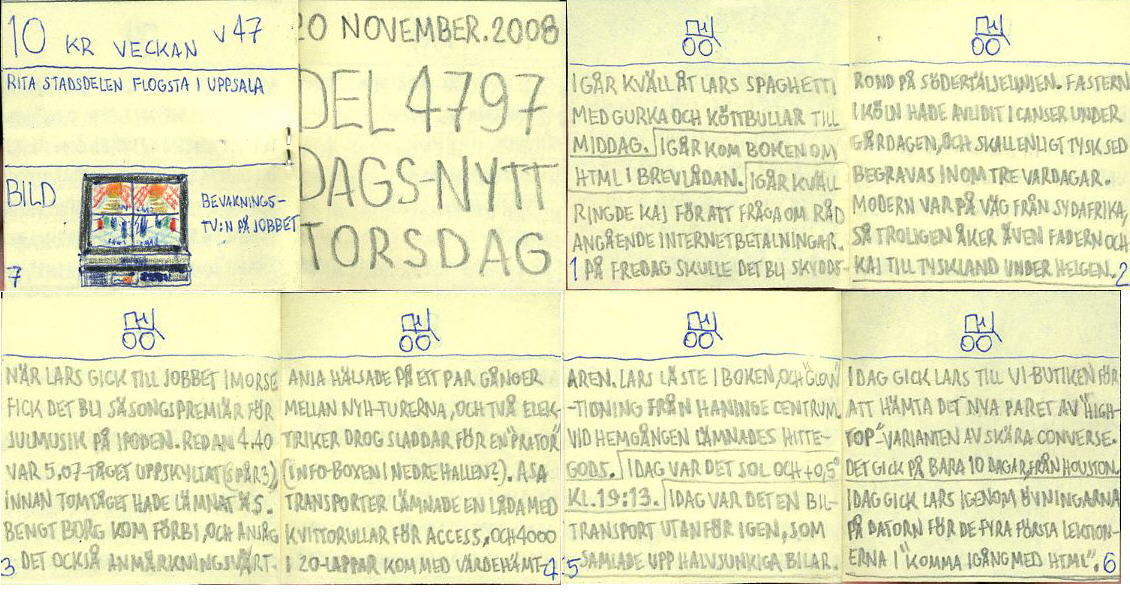 10 KR VECKAN V47
RITA STADSDELEN FLOGSTA I UPPSALA
BILD
BEVAKNINGS-
TV:N PÅ JOBBET
7
20 NOVEMBER.2008
DEL 4797
DAGS-NYTT
TORSDAG
I GÅR KVÄLL ÅT LARS SPAGHETTI
MED GURKA OCH KÖTTBULLAR TILL
MIDDAG. IGÅR KOM BOKEN OM
HTML I BREVLÅDAN. IGÅR KVÄLL
RINGDE KAJ FÖR ATT FRÅGA OM RÅD
ANGÅENDE INTERNETBETALNINGAR.
1 PÅ FREDAG SKULLE DET BLI SKYDDS-
ROND PÅ SÖDERTÄLJELINJEN. FASTERN
I KÖLN HADE AVLIDIT I CANSER UNDER
GÅRDAGEN, OCH SKALL ENLIGT TYSK SED
BEGRAVAS INOM TRE VARDAGAR.
MODERN VAR PÅ VÄG FRÅN SYDAFRIKA,
SÅ TROLIGEN ÅKER ÄVEN FADERN OCH
KAJ TILL TYSKLAND UNDER HELGEN. 2
NÄR LARS GICK TILL JOBBET I MORSE
FICK DET BLI SÄSONGSPREMIÄR FÖR
JULMUSIK PÅ IPODEN. REDAN 4.40
VAR 5.07-TÅGET UPPSKYLTAT (SPÅR 3),
INNAN TOMTÅGET HADE LÄMNAT ÄS.
BENGT BORG KOM FÖRBI, OCH ANSÅG
3 DET OCKSÅ ANMÄRKNINGSVÄRT.
ANJA HÄLSADE PÅ ETT PAR GÅNGER
MELLAN NYH-TURERNA, OCH TVÅ ELEK-
TRIKER DROG SLADDAR FÖR EN "PRATOR"
(INFO-BOXEN I NEDRE HALLEN?). ASA
TRANSPORTER LÄMNADE EN LÅDA MED
KVITTORULLAR FÖR ACCESS, OCH 4000
I 20-LAPPAR KOM MED VÄRDEHÄMT- 4
AREN. LARS LÄSTE I BOKEN, OCH "GLOW"
-TIDNING FRÅN HANINGE CENTRUM.
VID HEMGÅNGEN LÄMNADES HITTE-
GODS. IDAG VAR DET SOL OCH +0,5°
KL.19:13. IDAG VAR DET EN BIL-
TRANSPORT UTANFÖR IGEN, SOM
5 SAMLADE UPP HALVSJUNKIGA BILAR.
I DAG GICK LARS TILL VI-BUTIKEN FÖR
ATT HÄMTA DET NYA PARET AV "HIGH-
TOP"-VARIANTEN AV SKÄRA CONVERSE.
DET GICK PÅ BARA 10 DAGAR FRÅN HOUSTON.
IDAG GICK LARS IGENOM ÖVNINGARNA
PÅ DATORN FÖR DE FYRA FÖRSTA LEKTION-
ERNA I "KOMMA IGÅNG MED HTML". 6